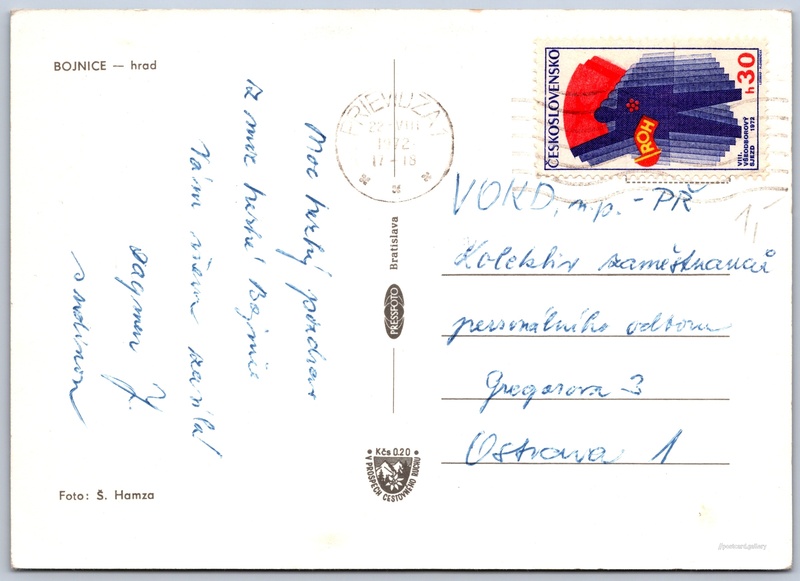 BOJNICE — hrad
Moc hezký pozdrav
z moc hezké Bojnice
Vám všem zasílá
Dagmar J.
s rodinou
Foto: Š. Hamza
PRESSFOTO Bratislava
Kčs 0.20
V PROSPECH CESTOVNÉHO RUCHU
PRIEVIDZA 1
22.-VIII.
1972
17-18
ČESKOSLOVENSKO
30 h
ROH
VIII.
VŠEODBOROVÝ
SJEZD 1972
VOKD, n.p. - PŘ
Kolektiv zaměstnanců
personálního odboru
Gregorova 3
Ostrava 1
//postcard.gallery